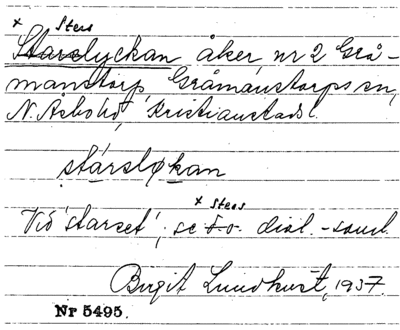 x Sters
Starslyckan åker nr 2 Grå-
manstorp Gråmanstorps sn,
N. Åsbo hd, Kristianstads l.
stárslø̨kan
x Sters
Vid 'starset'; se d.o. dial.-saml.
Birgit Lundkvist, 1937.
Nr 5495.